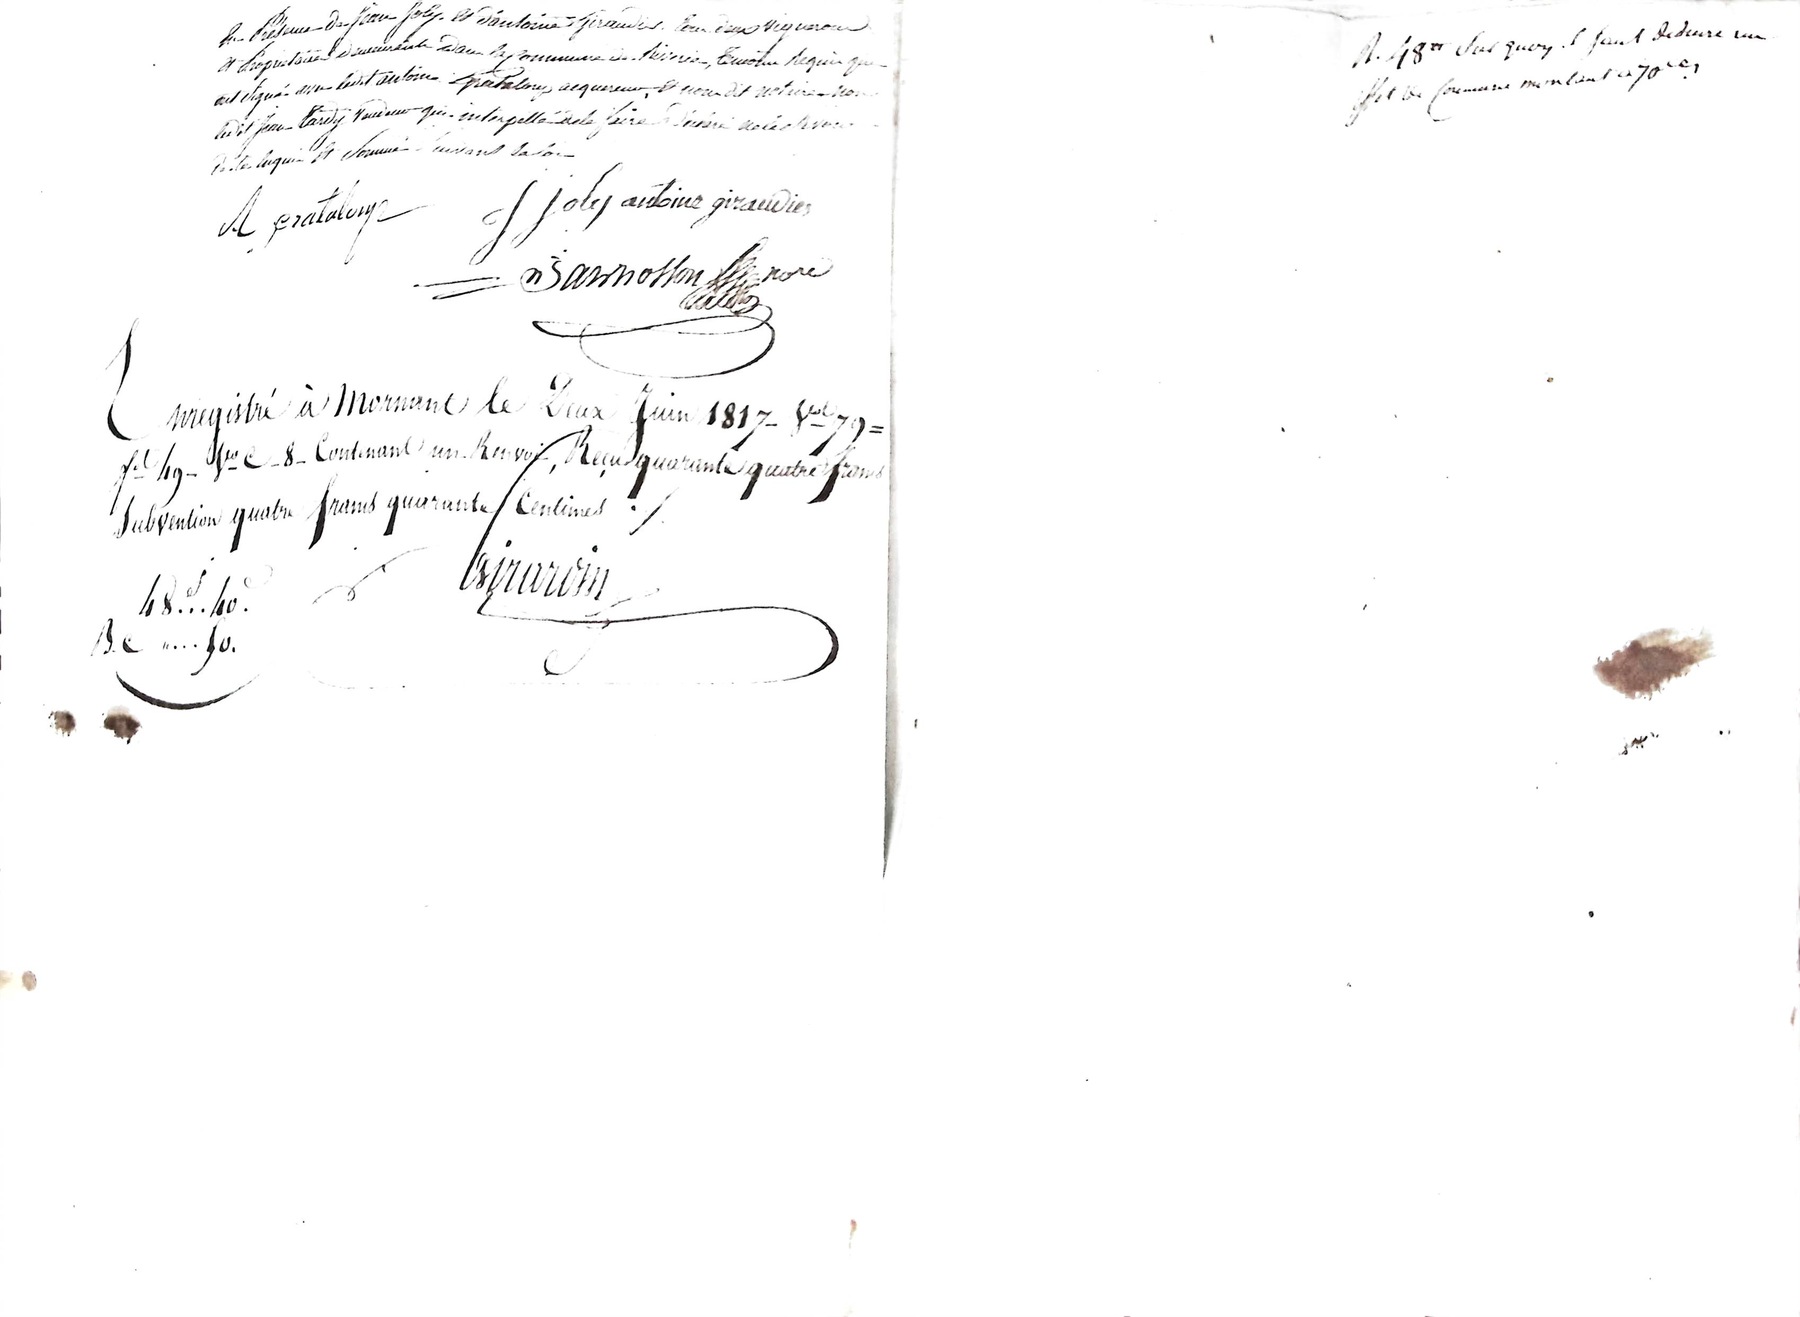 en Présence de Jean Joly et d'antoine Giraudier tous deux vignerons
et Propriétaires demeurants dans la commune de Riverie, témoins requis qui
ont signé avec ledit antoine prataloup acquereur, et nous dit notaire non
ledit Jean tardy vendeur qui interpellé de le faire a déclaré ne le savoir
de ce requis et sommé suivant la loi
A prataloup J Joly antoine giraudier
nore
Enregistré à Mornant le Deux Juin 1817 vol 79 =
fol 49 vo C 8 Contenant un Renvoi, Reçu quarante quatre francs
Subvention quatre francs quarante Centimes ./.
Girardin
48 f... 40 c
R. 48 Sur quoy il faut deduire un
effet de Commune montant a 70